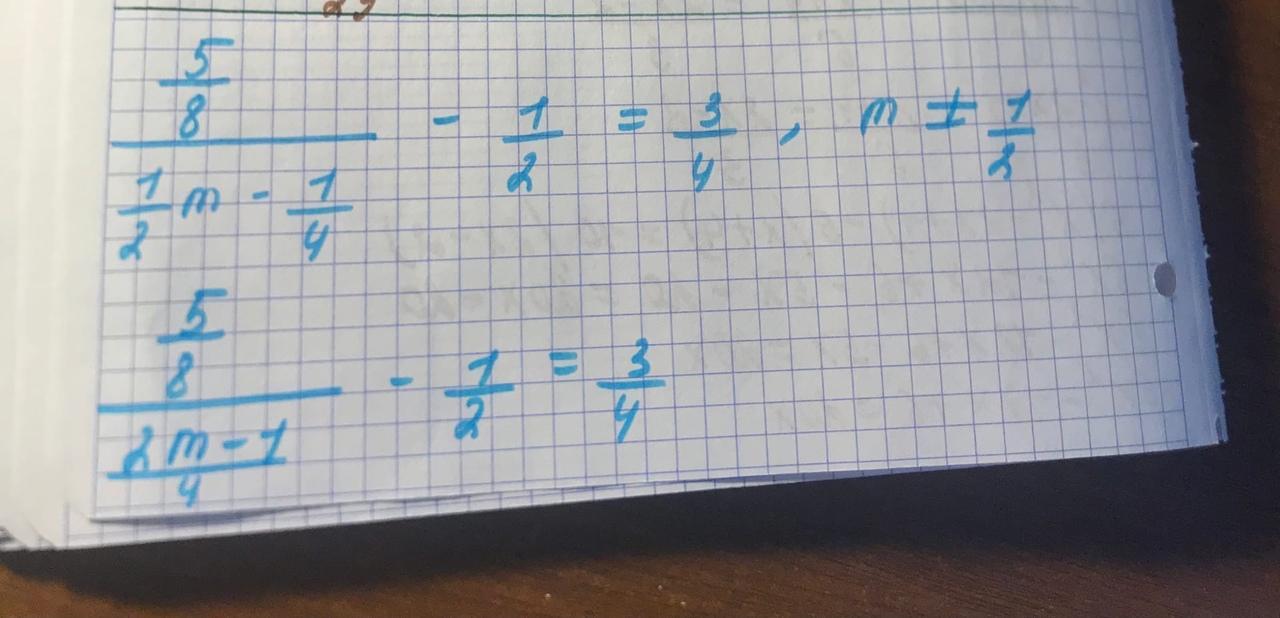 5/8 / (1/2 m - 1/4) - 1/2 = 3/4 , m ≠ 1/2
5/8 / ((2m - 1)/4) - 1/2 = 3/4